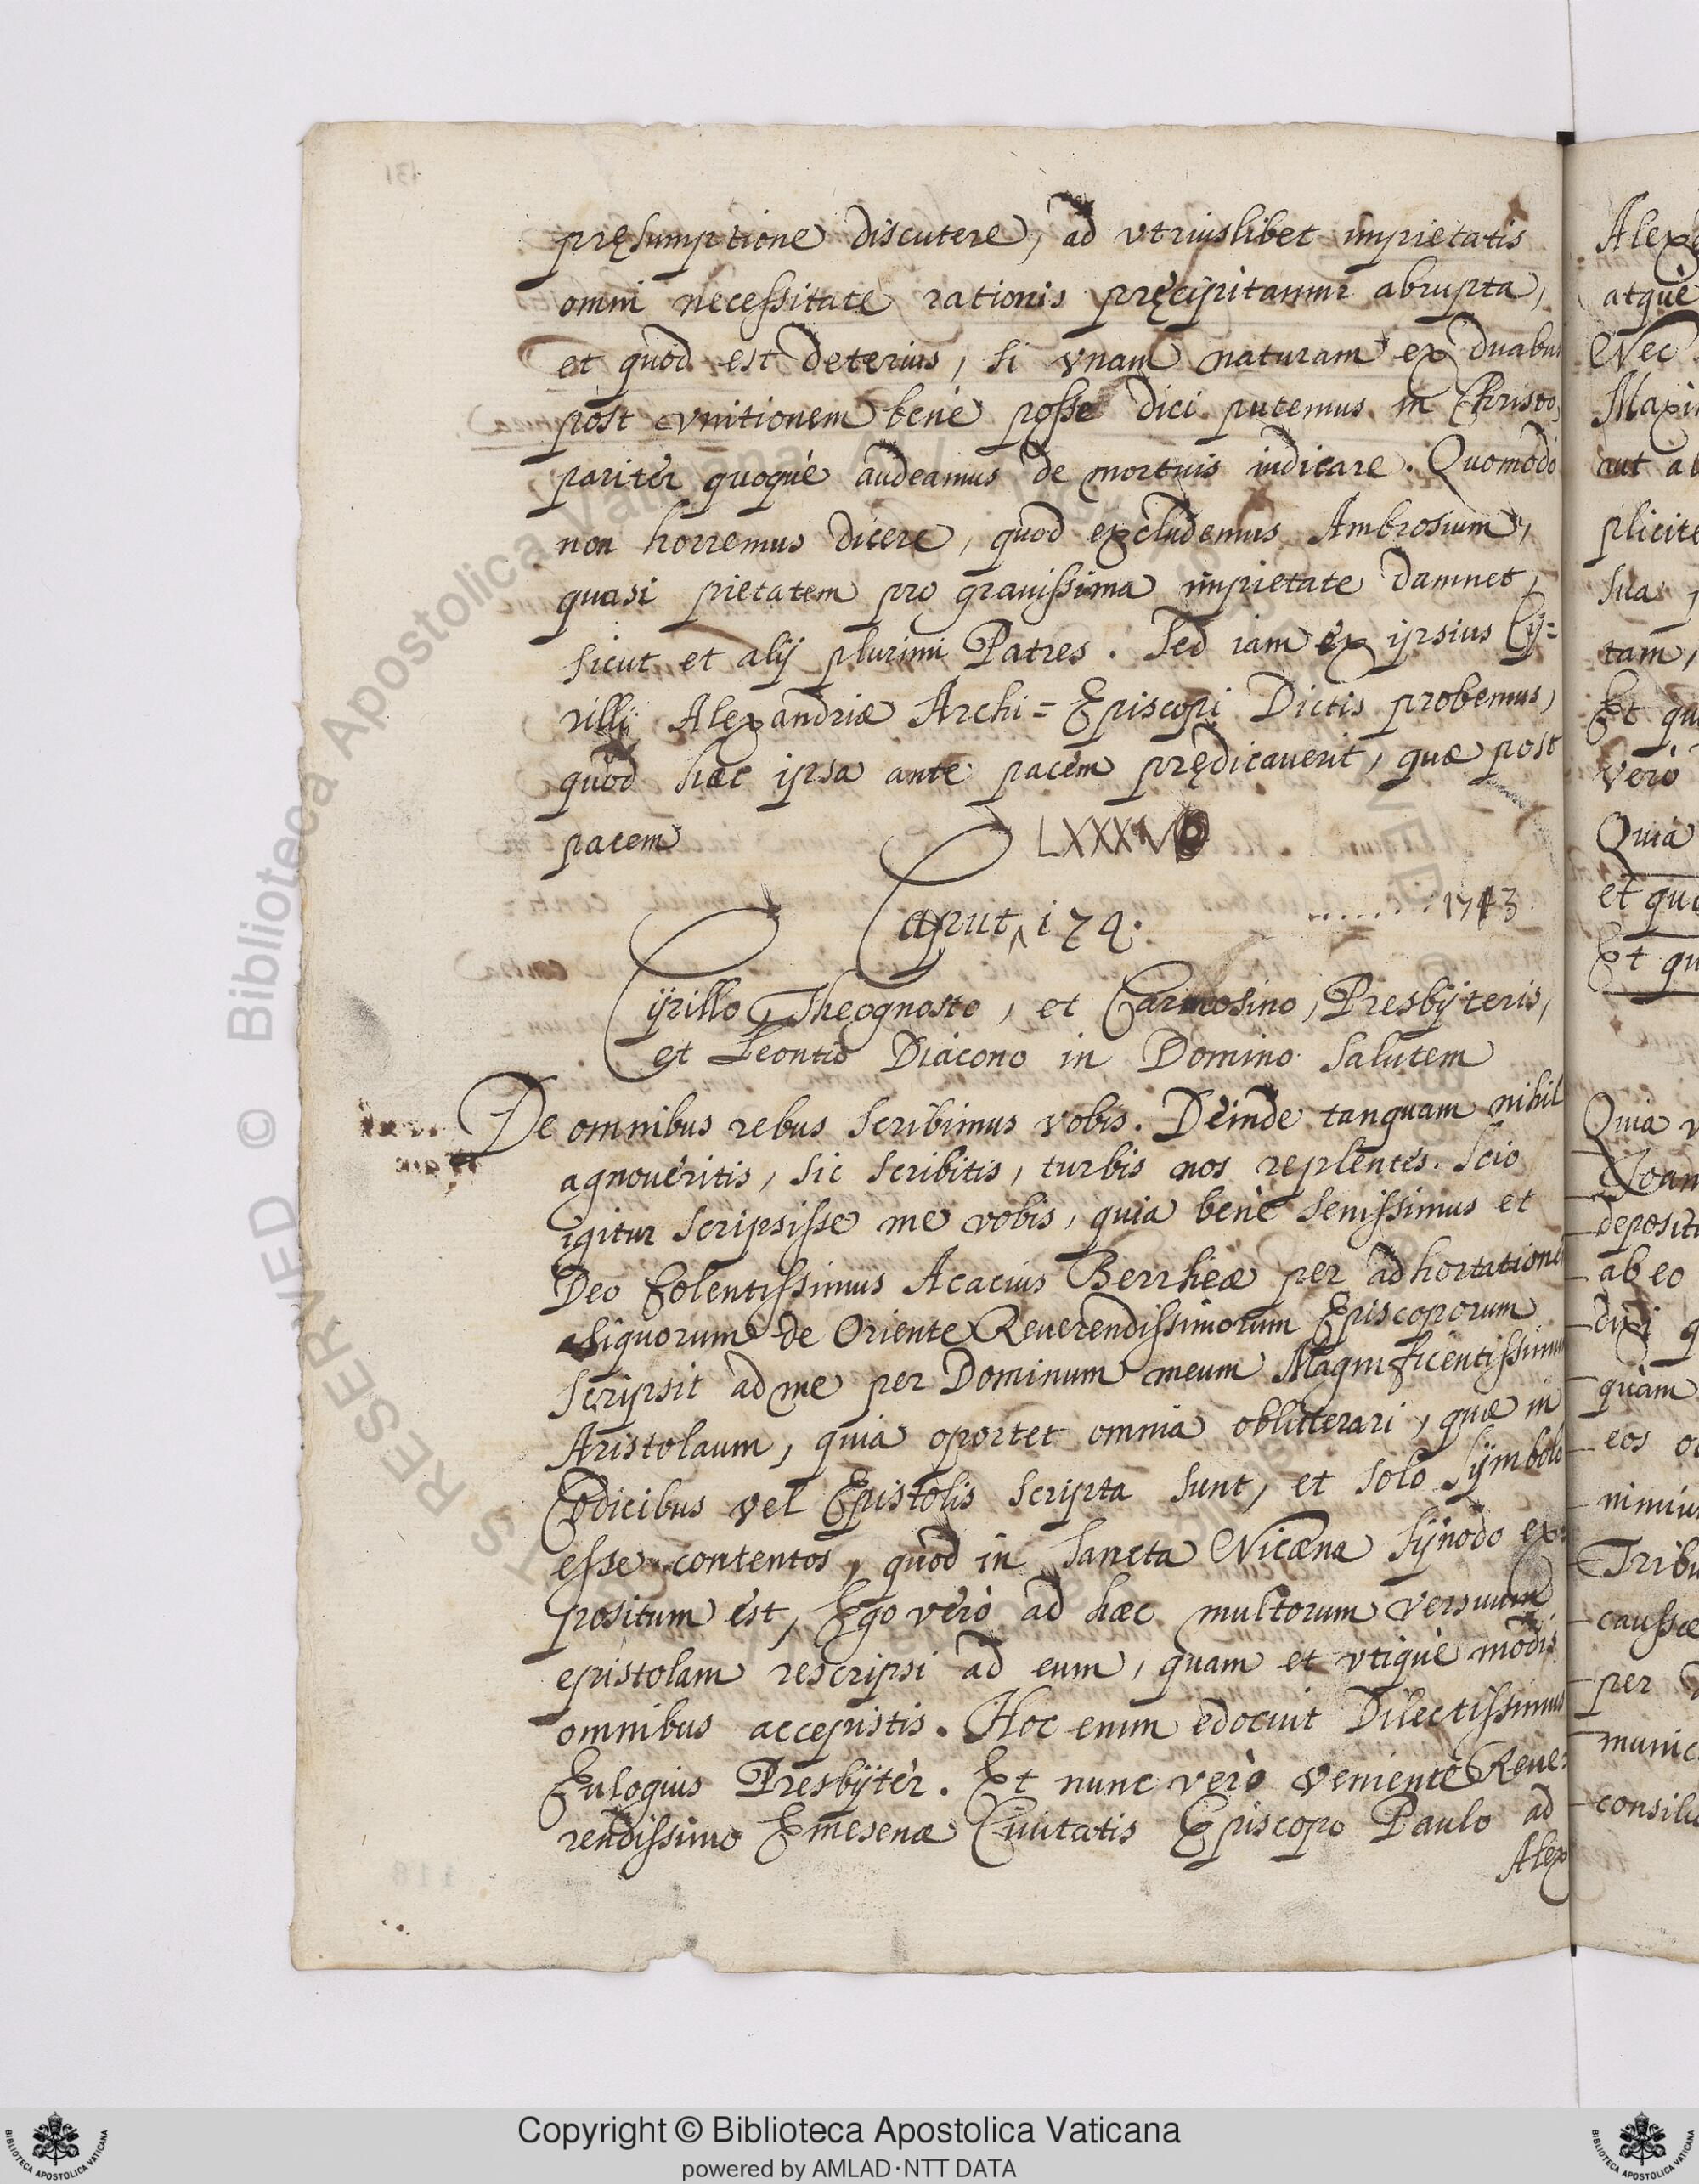 pręsumptione discutere, ad vtriuslibet impietatis
omni necessitate rationis pręcipitamur abrupta,
et quòd est deterius, si vnam naturam ex duabus
post vnitionem benè posse dici putemus in Christo,
paritèr quoquè audeamus de mortuis iudicare. Quomodò
non horremus dicere, quòd excludemus Ambrosium,
quasi pietatem pro grauissima impietate damnet,
sicut et alij plurimi Patres. Sed iam ex ipsius Cÿ=
rilli Alexandriæ Archi=Episcopi Dictis probemus,
quòd hæc ipsa ante pacem prędicauerit, quæ post
pacem
LXXXV
Caput 174.
....... 1743
Cÿrillo, Theognosto, et Carmosino, Presbÿteris,
et Leontio Diacono in Domino salutem
De omnibus rebus scribimus vobis. Deinde tanquam nihil
agnoueritis, sic scribitis, turbis nos replentes. Scio
igitur scripsisse me vobis, quia benè senissimus et
Deo Colentissimus Acacius Berrheæ per adhortatione
siquorum de Oriente Reuerendissimorum Episcoporum
scripsit ad me per Dominum meum Magnificentissimum
Aristolaum, quia oportet omnia oblitterari, quæ in
Codicibus vel Epistolis scripta sunt, et solo Sÿmbolo
esse contentos, quòd in Sancta Nicæna Sÿnodo ex=
positum est, Ego verò ad hæc multorum versuum
epistolam rescripsi ad eum, quam et vtiquè modis
omnibus accepistis. Hoc enim edocuit Dilectissimus
Eulogius Presbÿter. Et nunc verò veniente Reue=
rendissimo Emesenæ Ciuitatis Episcopo Paulo ad
Alex
atquè
Nec
aut
plicite
sua
tam,
Et
verò
Quia
et
Et
Quia
ab eo
quàm
eos
caussæ
per
Copyright © Biblioteca Apostolica Vaticana
powered by AMLAD·NTT DATA